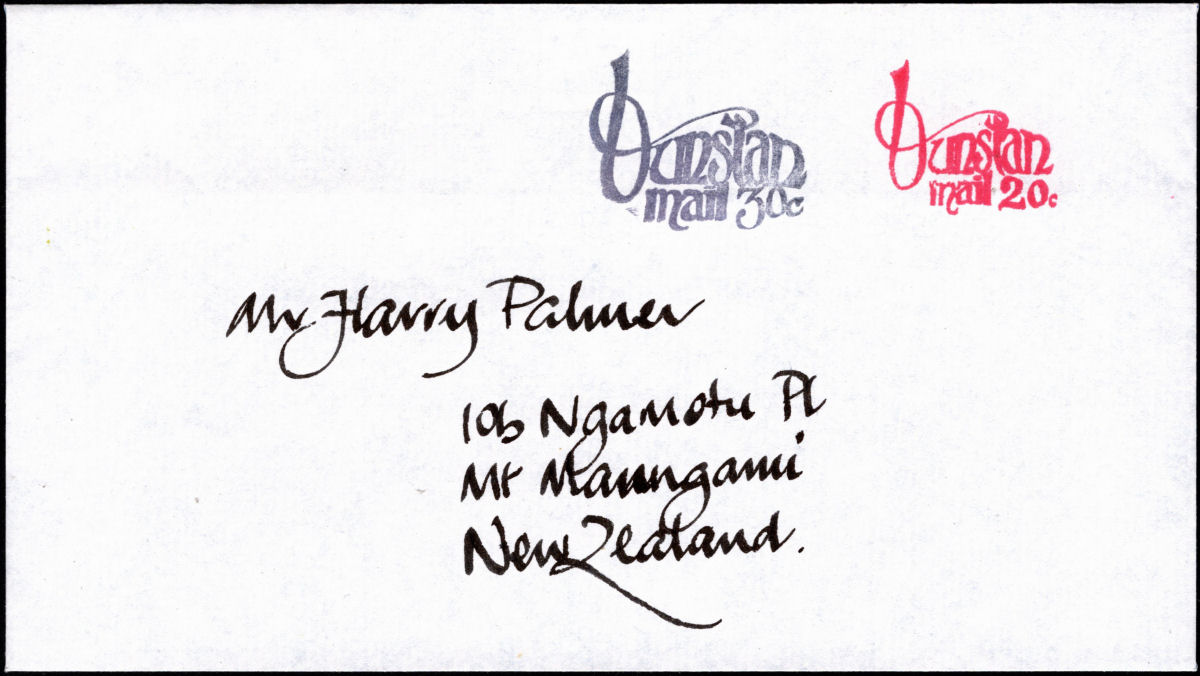 Dunstan
mail 30c
Dunstan
mail 20c
Mr Harry Palmer
10b Ngamotu Pl
Mt Maunganui
New Zealand.